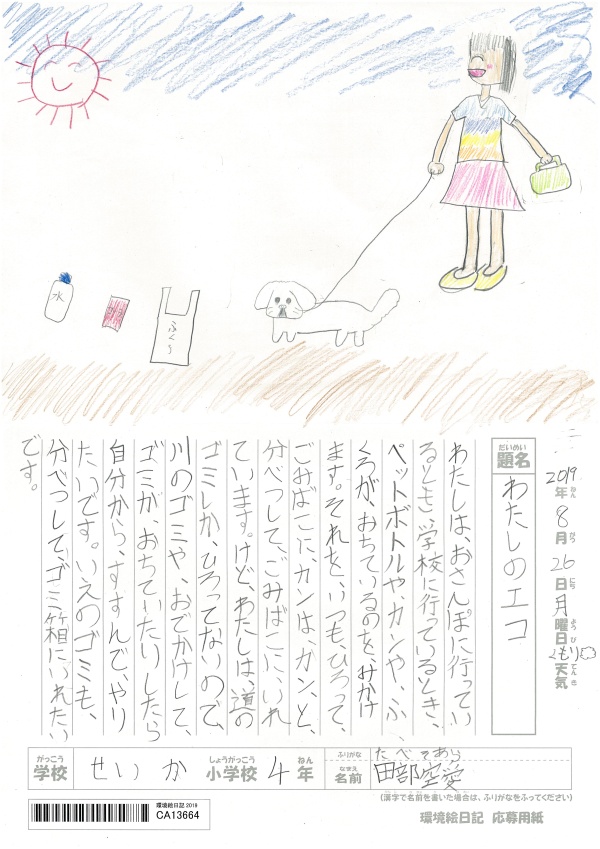 水
ふくろ
2019年 8月 26日 月曜日 くもり 天気
ねん がつ にち ようび てんき
だいめい
題名
わたしのエコ
わたしは、おさんぽに行ってい
るとき、学校に行っているとき、
ペットボトルや、カンや、ふ
くろが、おちているのを、みかけ
ます。それを、いつも、ひろって、
ごみばこに、カンは、カン、と、
分べつして、ごみばこに、いれ
ています。けど、わたしは、道の
ゴミしか、ひろってないので、
川のゴミや、おでかけして、
ゴミが、おちていたりしたら
自分から、すすんで、やり
たいです。いえのゴミも、
分べつして、ゴミ箱にいれたい
です。
がっこう しょうがっこう ねん
学校 せいか 小学校 4年
ふりがな たべ そあら
なまえ
名前 田部空愛
(漢字で名前を書いた場合は、ふりがなをふってください)
環境絵日記 2019
CA13664
環境絵日記 応募用紙